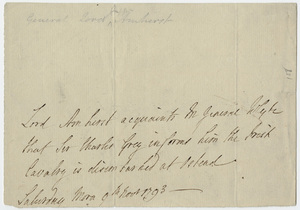 General Lord Amherst
Lord Amherst acquaints M General Whyte
that Sir Charles Grey informs him the
Cavalry is disembarked at Ostend
Saturday Morn 9th Novr 1793